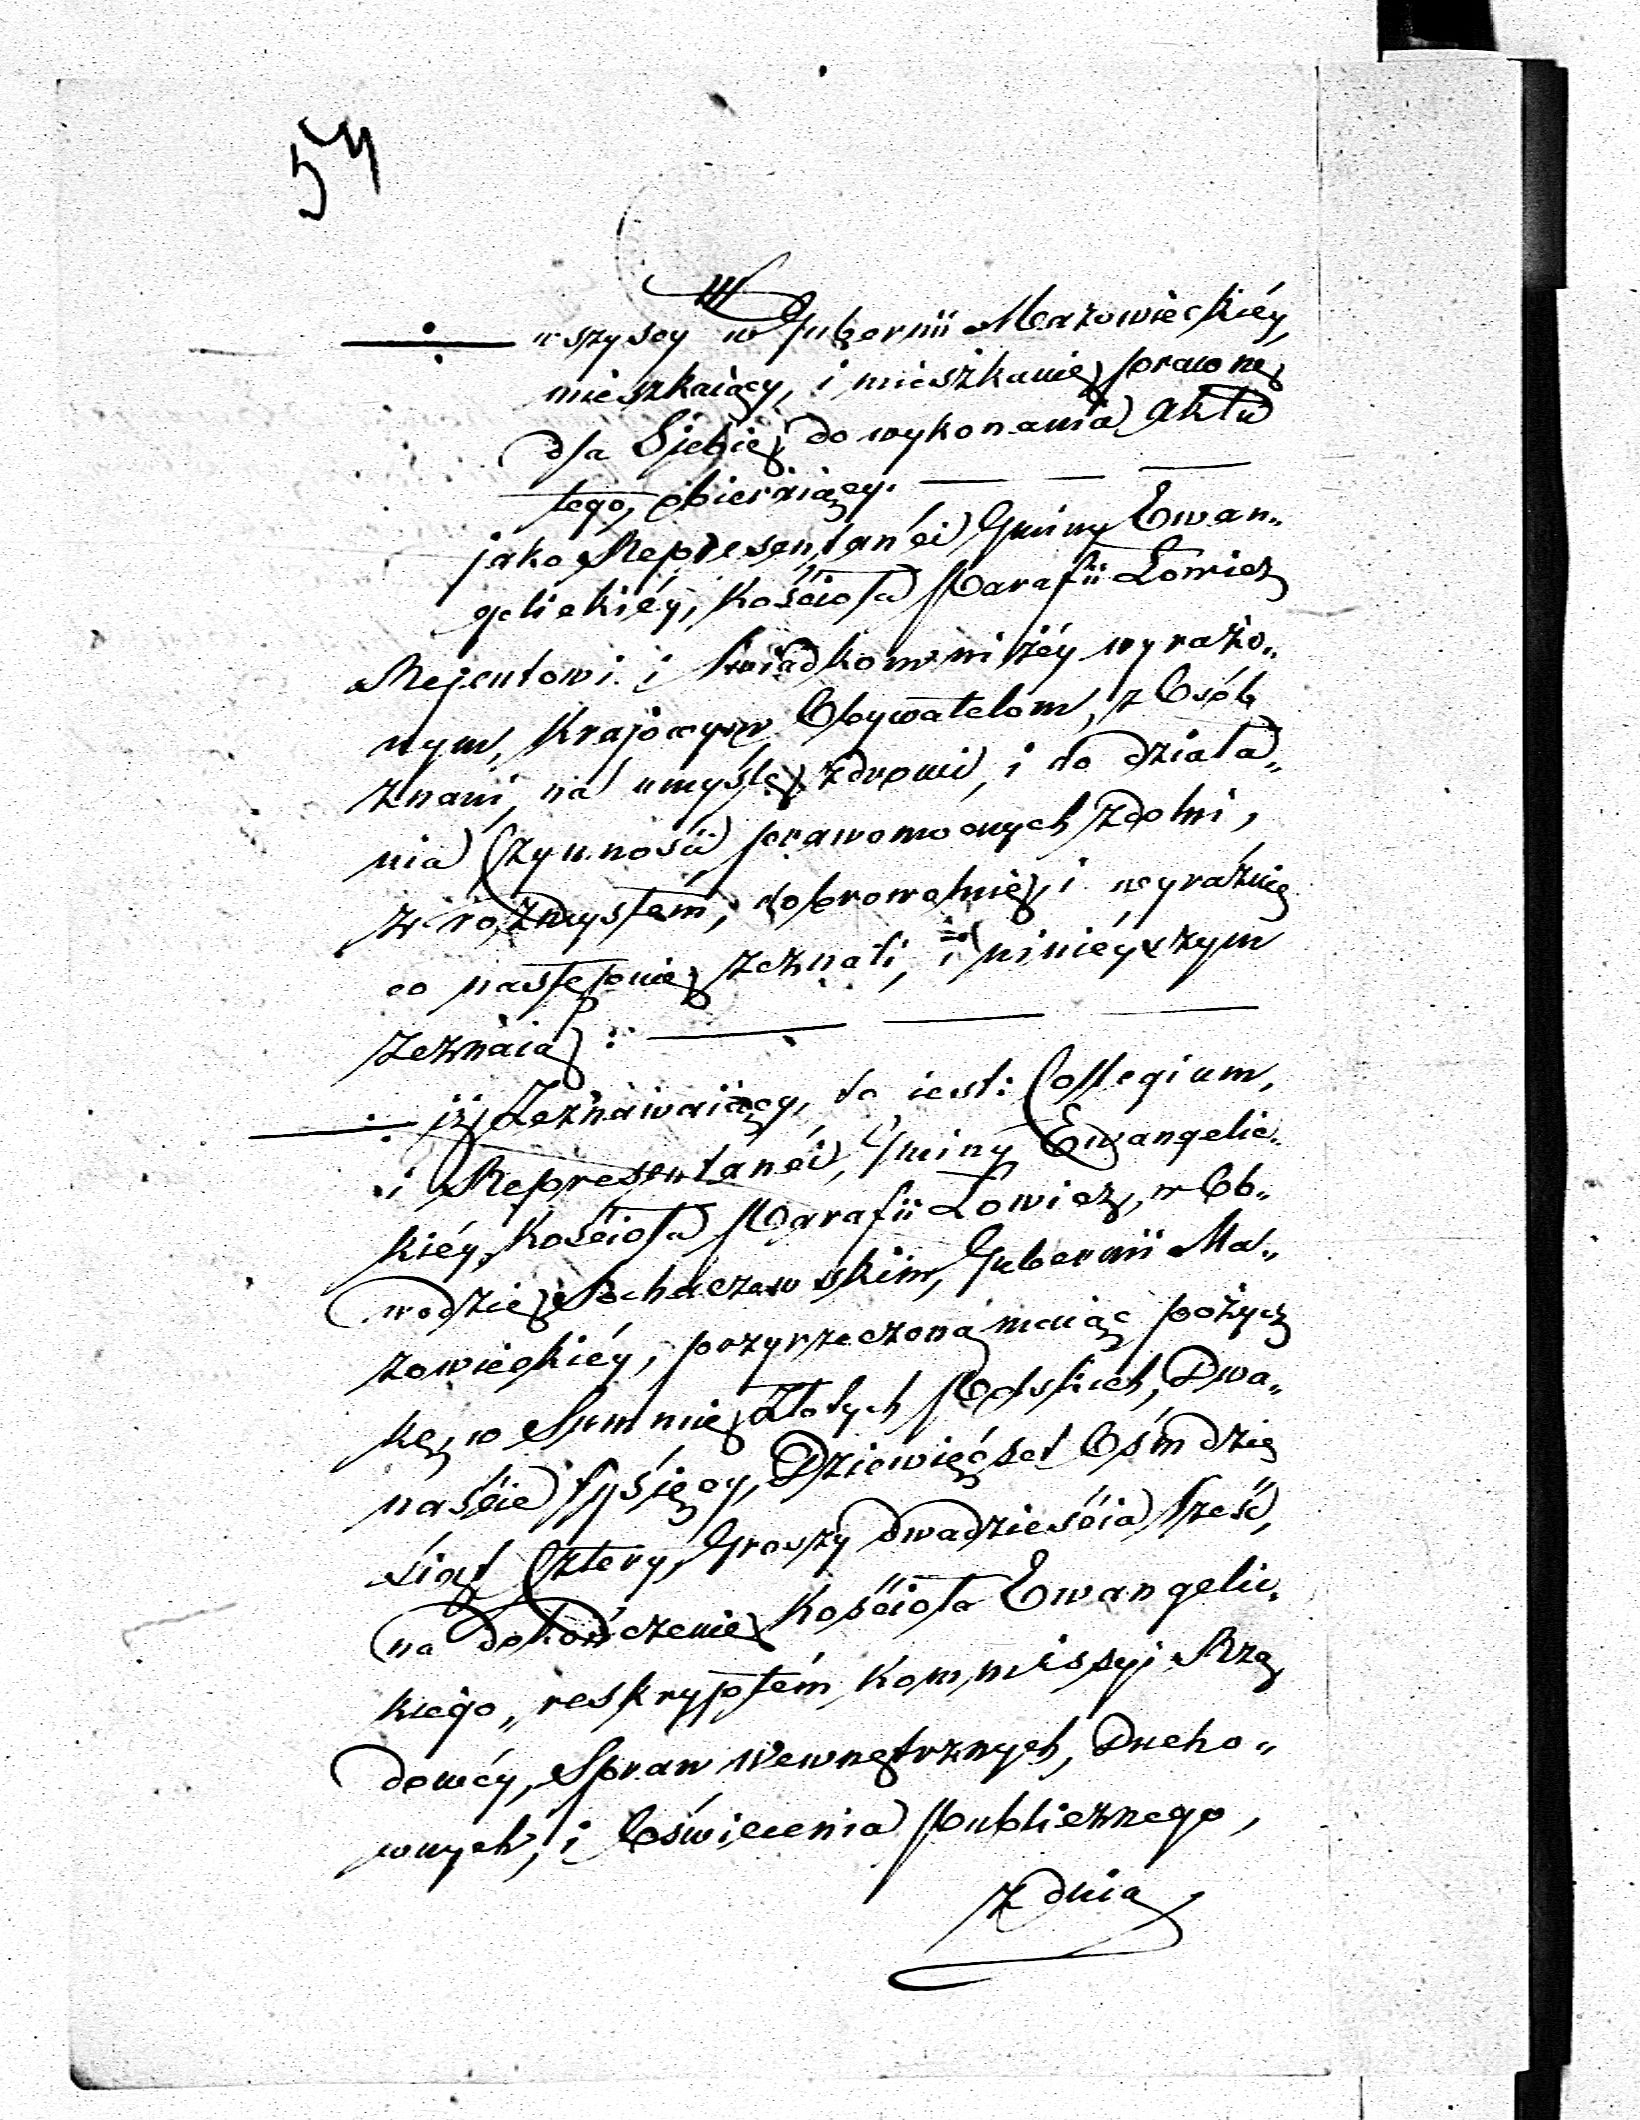 54
wszyscy w Gubernii Mazowieckiéy,
mieszkaiący, i mieszkanie prawne
dla Siebie, do wykonania Aktu
tego, obieraiący.
jako Reprezentanći Gminy Ewan„
gelickiéy, Kościoła Parafii Łowicz
Rejentowi i Swiadkom niżéy wyrażo„
nym, Krajowym Obywatelom, z Osób
znani, na umyśle zdrowi, i do działa„
nia Czynności prawomocnych zdolni,
z rozmysłem, dobrowolnie, i wyraźnie
co następuie zeznali, i ninieyszym
zeznaią:
iż Zeznawaiący, to iest: Collegium,
i Reprezentanći, Gminy Ewangelic„
kiéy, Kościoła Parafii Łowicz, w Ob„
wodzie Sochaczewskim, Gubernii Ma„
zowieckiéy, przyrzeczoną maiąc pożycz
kę, w Summie Złotych Polskich, Dwa„
naście tysięcy, Dziewięćset Ośmdzie
siąt Cztery, Groszy dwadzieścia sześć,
na dokończenie Kościoła Ewangelic„
kiego, reskryptém Kommissyi Rzą
dowéy, Spraw Wewnętrznych, Ducho„
wnych, i Oświecenia Publicznego,
z dnia